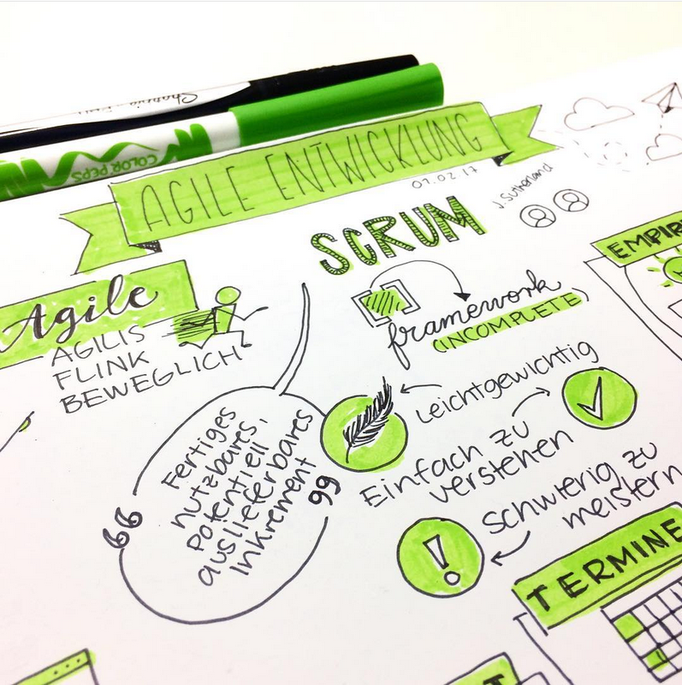 COLOR'PEPS
AGILE ENTWICKLUNG
07.02.17
J. Sutherland
SCRUM
EMPIR
Agile
AGILIS
FLINK
BEWEGLICH
framework
(INCOMPLETE)
Leichtgewichtig
Einfach zu
verstehen
Schwierig zu
meistern
Fertiges
nutzbares,
potentiell
auslieferbares
Inkrement
TERMINE
T